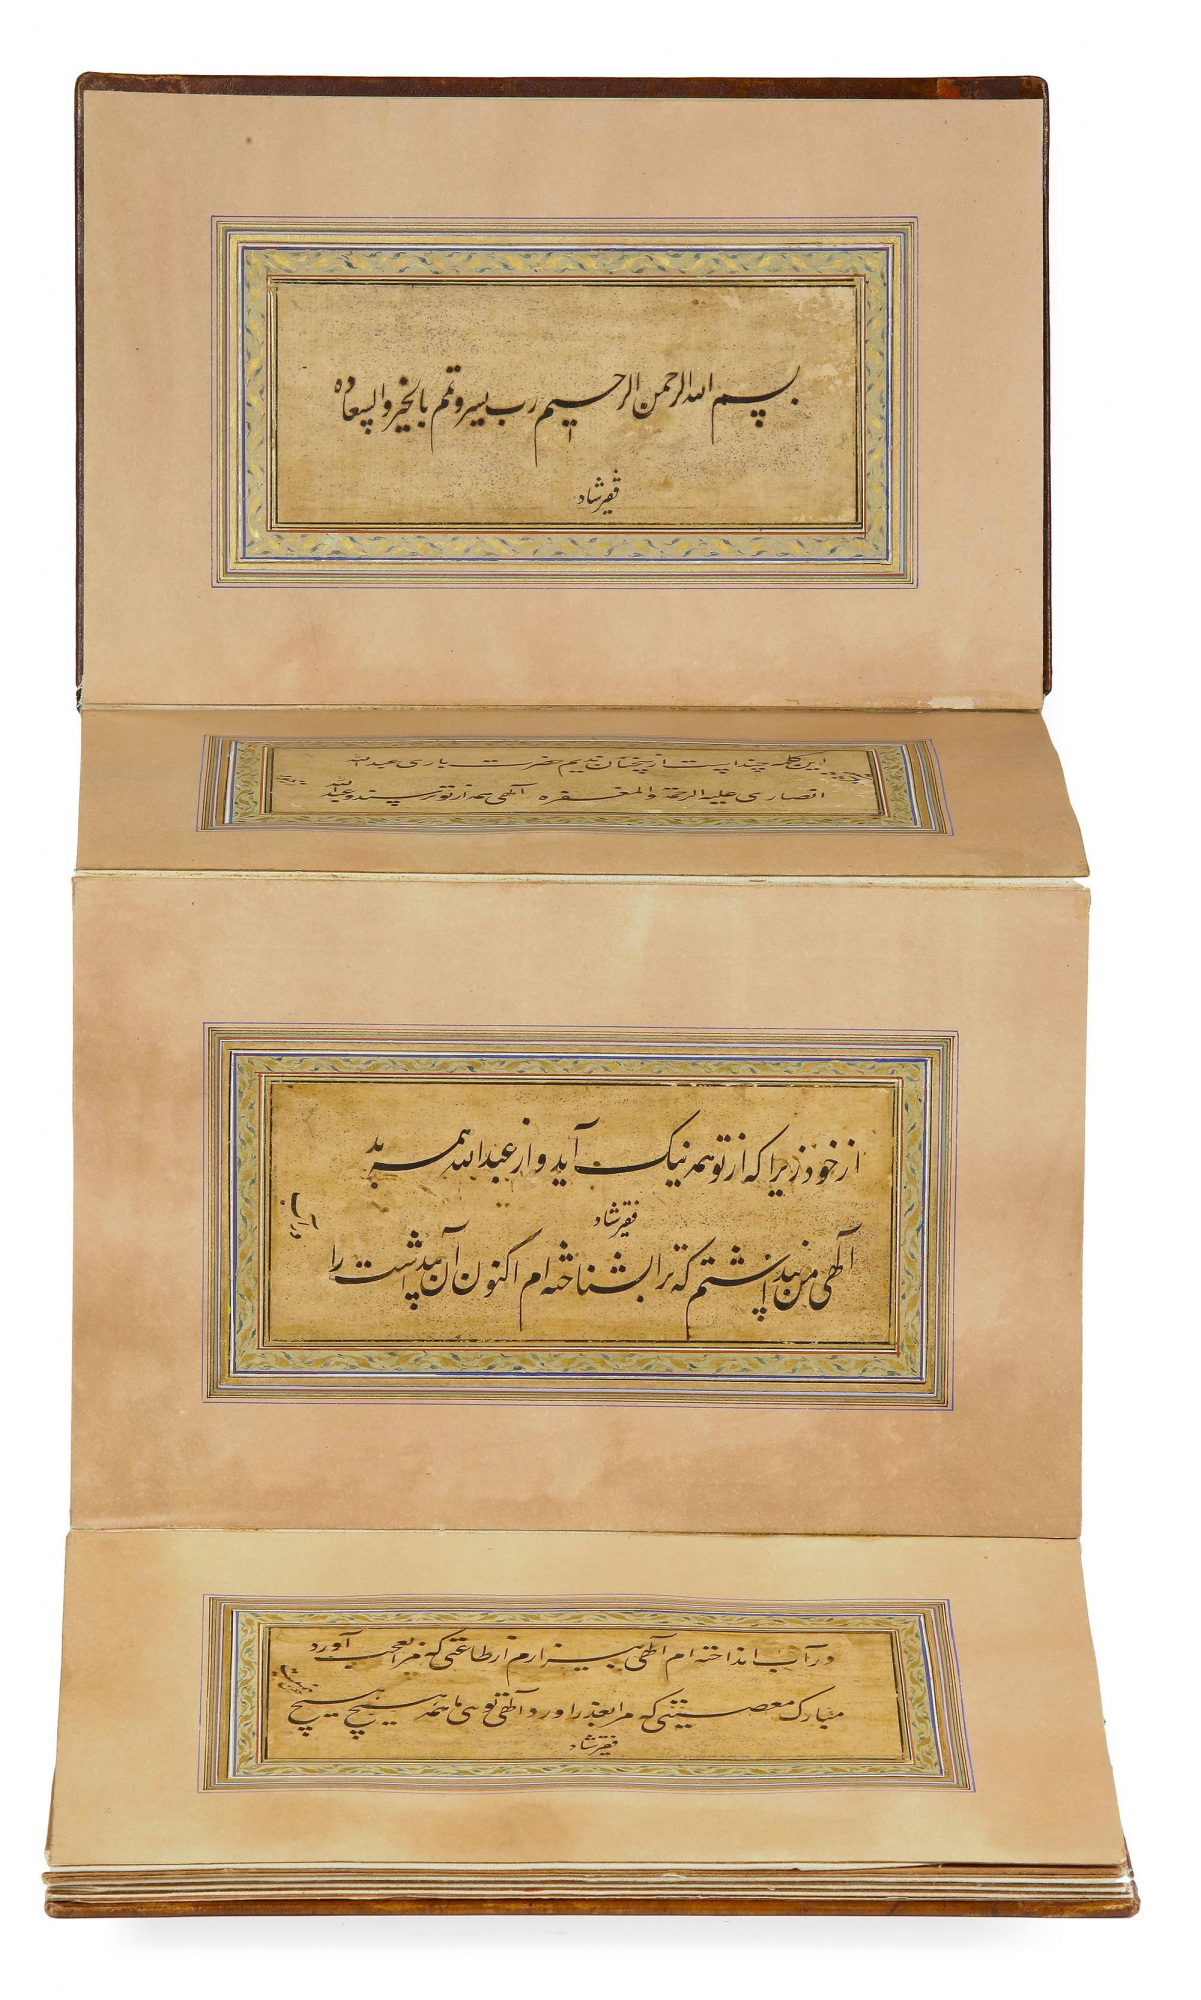 بسم الله الرحمن الرحیم رب یسر و تمم بالخیر و السعاده
فقیر شاد
این کلمه چند است از سخنان ندیم حضرت باری عبدالله
انصاری علیه الرحمة والمغفره الهی همه از تو ترسند و عبدالله
از خود زیرا که از تو همه نیک آید و از عبدالله همه بد
فقیر شاد
الهی من پنداشتم که ترا بشناخته ام اکنون آن پنداشت را
در آب
در آب انداخته ام الهی بیزارم از طاعتی که مرا بعجب آورد
مبارک معصیتی که مرا بعذر آورد الهی تویی ما همه هیچ هیچ
فقیر شاد